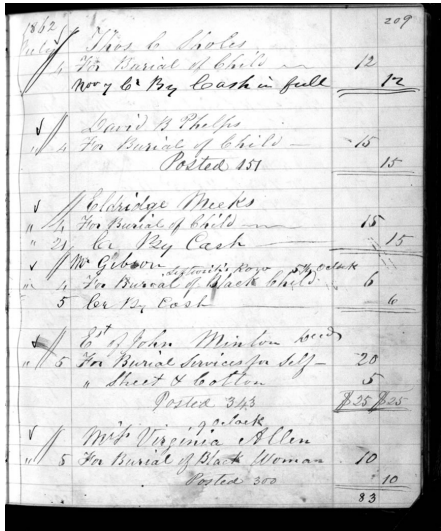 209
1862
July Thos C Sholes
4 For Burial of Child 12
Nov 7 Cr By Cash in full 12
David B Phelps
" 4 For Burial of Child 15
Posted 151 15
Eldridge Meeks
" 4 For Burial of Child 15
" 21 Cr By Cash 15
Mr Gibson
" 4 For Burial of Black Child 6
5 Cr By Cash 6
Est of John Minton
" 5 For Burial Services for Self 20
" Sheet & Cotton 5
Posted 343 $25 $25
Virginia Allen
" 5 For Burial of Black Woman 10
Posted 300 10
83